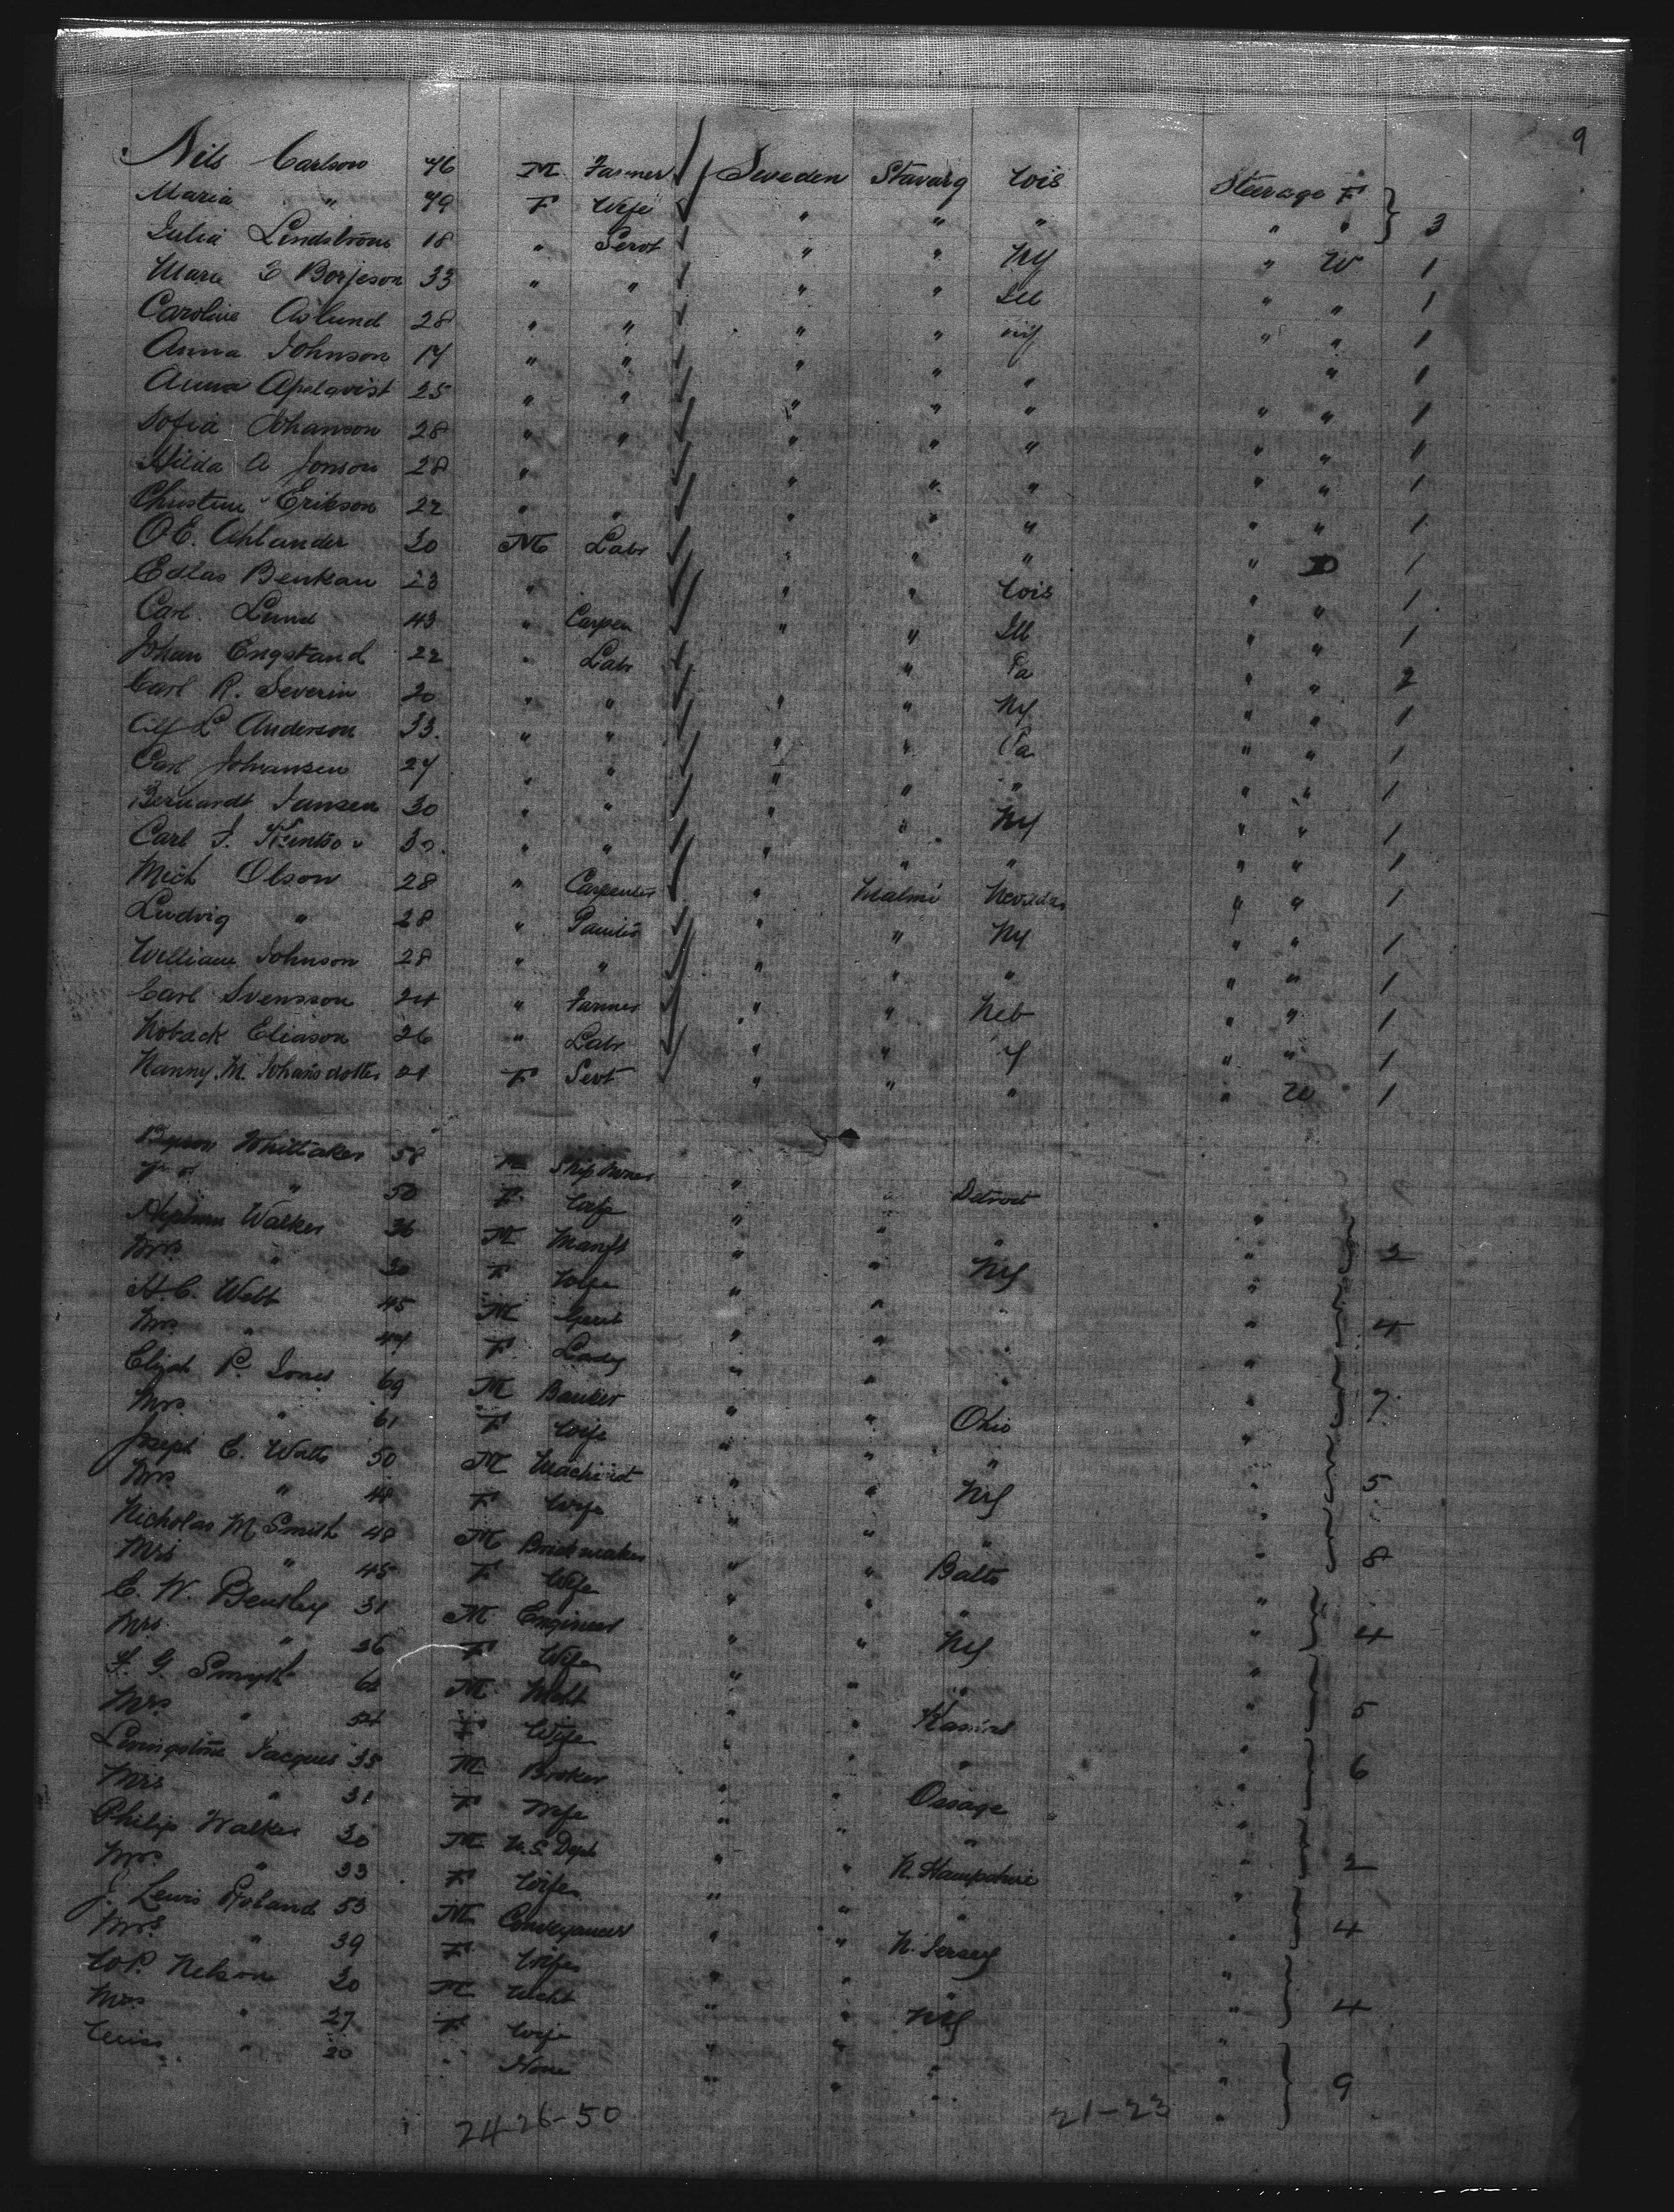 9
Nils Carlson 46 M Farmer Sweden Stavarg Wis Steerage F
Maria " 49 F Wife " " " " " 3
Julia Lindstrom 18 " Servt " " NY " W 1
Maria E Borjeson 33 " " " " Ill " " 1
Carolina Aslund 28 " " " " NY " " 1
Anna Johnson 17 " " " " " " 1
Anna Apelqvist 25 " " " " " " " 1
Sofia Johanson 28 " " " " " " " 1
Hilda A Jonson 28 " " " " " " 1
Christine Erikson 22 " " " " " " " 1
O.E. Ahlander 30 M Labr " " " " D 1
Edlas Benkau 23 " " " Wis " " 1
Carl Lund 43 " Carpen " " Ill " " 1
Johan Engstand 22 " Labr " Pa " " 2
Carl R. Severin 20 " " " " NY " " 1
Alf L Anderson 33 " " " " Pa " " 1
Carl Johansen 27 " " " " " " " 1
Bernardt Jansen 30 " " " " NY " " 1
Carl J. 30 " " " " " " " 1
Mich Olson 28 " Carpenter " Malmö Nevada " " 1
Ludvig " 28 " Painter " " NY " " 1
William Johnson 28 " " " " " " " 1
Carl Svensson 24 " Farmer " " Neb " " 1
Noback Eliason 26 " Labr " " Y " " 1
Nanny M. Johansdotter 21 F Servt " " " " W 1
Byron Whittaker 58 M Ship owner " " Detroit "
" 50 F Wife " " " " 2
Stephen Walker 36 M Manft " " NY "
Mrs " 30 F Wife " " " " 4
H.C. Webb 45 M Gent " " " "
Mrs " 44 F Lady " " " " 7
Elijah P. Jones 69 M Banker " " Ohio "
Mrs " 61 F Wife " " " " 5
Joseph E. Watts 50 M Machinist " " NY "
Mrs " 48 F Wife " " " " 8
Nicholas M Smith 48 M Brickmaker " " Balto "
Mrs " 45 F Wife " " " " 4
E. W. Bensley 31 M Engineer " " NY "
Mrs " 26 F Wife " " " " 5
F. G. Smyth M Mcht " " Kansas "
Mrs " 54 F Wife " " " " 6
Livingstone Jacques 35 M Broker " " Ossage "
Mrs " 31 F Wife " " " " 2
Philip Walker 30 M U.S. Dept " " N. Hampshire "
Mrs " 33 F Wife " " " " 4
J. Lewis Roland 53 M Conveyancer " " N. Jersey "
Mrs " 39 F Wife " " " " 4
W.P. Nelson 30 M Mcht " " NY "
Mrs " 27 F Wife " " " "
Miss " 20 " None " " " " 9
24 26-50 21-23